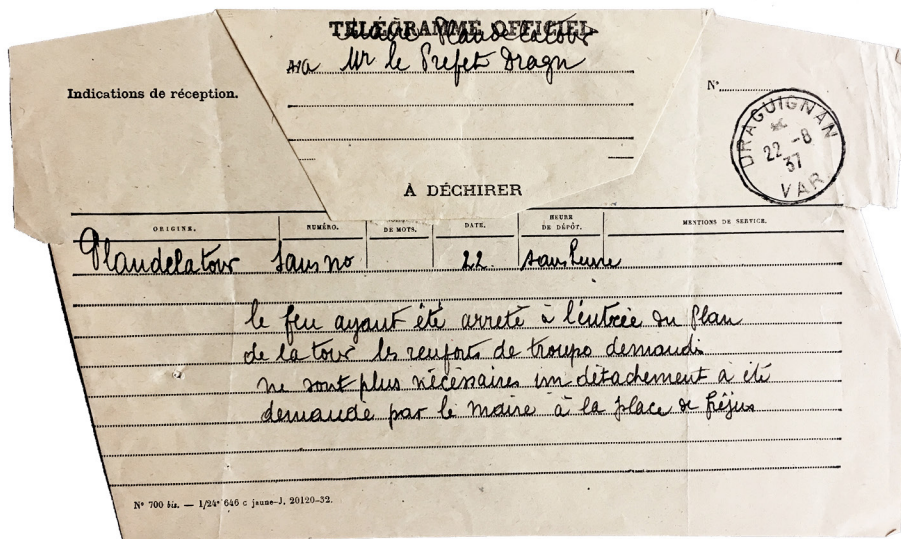 TÉLÉGRAMME OFFICIEL
Maire Plandelatour
à Mr le Prefet Dragn
Indications de réception.
N°
DRAGUIGNAN
22 -8
37
VAR
À DÉCHIRER
ORIGINE. NUMÉRO. DE MOTS. DATE. HEURE DE DÉPÔT. MENTIONS DE SERVICE.
Plandelatour sans no 22 sans heure
le feu ayant été arreté à l'entrée du Plan
de la tour les renforts de troupe demandés
ne sont plus nécéssaires un détachement a été
demandé par le maire à la place de fréjus
N° 700 bis. — 1/24e 646 c jaune-J. 20120-32.